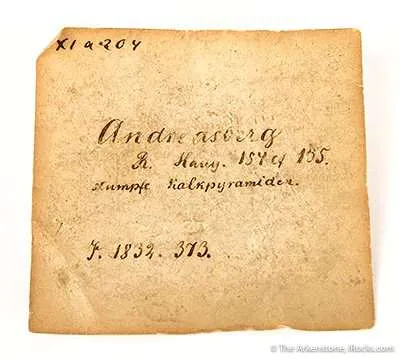 XI a·204
Andreasberg
R. Hauy. 154 & 155.
stumpfe Kalkpyramiden.
J. 1832. 373.
© The Arkenstone, iRocks.com